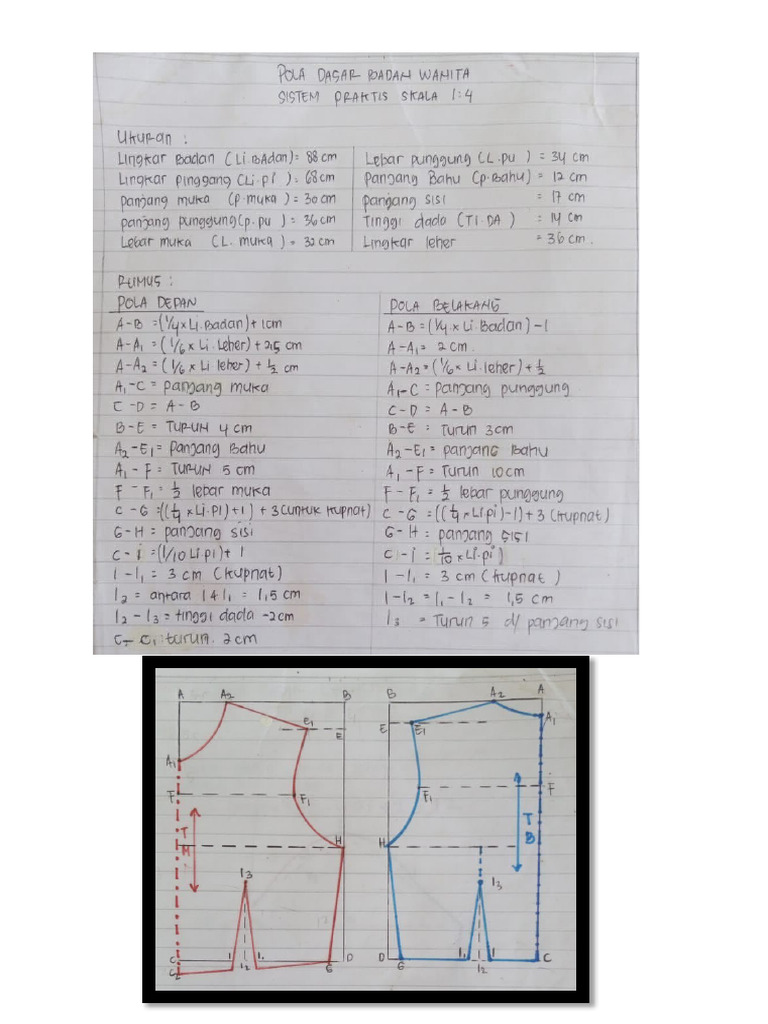 POLA DASAR BADAN WANITA
SISTEM PRAKTIS SKALA 1:4
Ukuran :
Lingkar Badan (Li.BAdan)= 88 cm
Lingkar pinggang (Li.pi ) = 68 cm
panjang muka (p.muka ) = 30 cm
panjang punggung(p.pu ) = 36 cm
Lebar muka (L. muka ) = 32 cm
Lebar punggung (L.pu ) = 34 cm
panjang Bahu (p.Bahu) = 12 cm
panjang sisi = 17 cm
Tinggi dada (TI.DA ) = 14 cm
Lingkar leher = 36 cm.
RUMUS :
POLA DEPAN
A-B =(1/4 x Li.Badan)+ 1cm
A-A1 = ( 1/6 x Li.Leher) + 2,5 cm
A-A2 = (1/6 x Li leher) + 1/2 cm
A1-C = panjang muka
C-D = A-B
B-E = TURUN 4 cm
A2-E1 = panjang Bahu
A1-F = TURUN 5 cm
F-F1 = 1/2 lebar muka
C-G =((1/4 x Li.PI)+1) + 3 (untuk kupnat)
G-H = panjang sisi
C-i =(1/10 Li pi)+ 1
I-I1 = 3 cm (kupnat)
I2 = antara I & I1 = 1,5 cm
I2-I3 = tinggi dada -2cm
C- C1 : turun. 2 cm
POLA BELAKANG
A-B = (1/4. x Li Badan) -1
A-A1 = 2 cm.
A-A2 = (1/6 x Li.leher) + 1/2
A1-C = panjang punggung
C-D = A-B
B-E = Turun 3cm
A2-E1 = panjang Bahu
A1-F = Turun 10 cm
F-F1 = 1/2 lebar punggung
C-G = ((1/4 x Li pi)-1)+3 (kupnat)
G-H = panjang sisi
C-i = 1/10 x Li.pi)
I-I1 = 3 cm (kupnat )
I-I2 = I1-I2 = 1,5 cm
I3 = Turun 5 d/ panjang sisi
A A2 B
E1
E
A1
F F1
T
M
H
I3
C I I2 I1 G D
C2
B A2 A
A1
E E1
F1 F
T
B
H
I3
D G I1 I2 I C